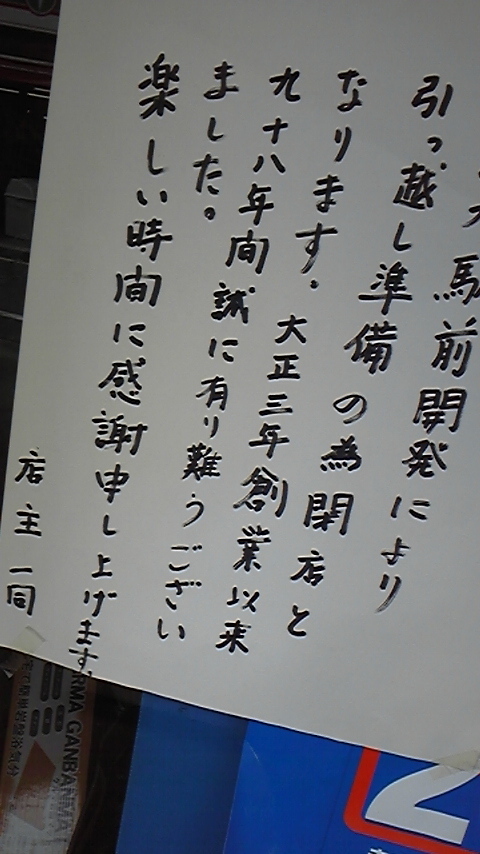 駅前開発により
引っ越し準備の為閉店と
なります。大正三年創業以来
九十八年間誠に有り難うござい
ました。
楽しい時間に感謝申し上げます。
店主一同
RMA GANBANMA